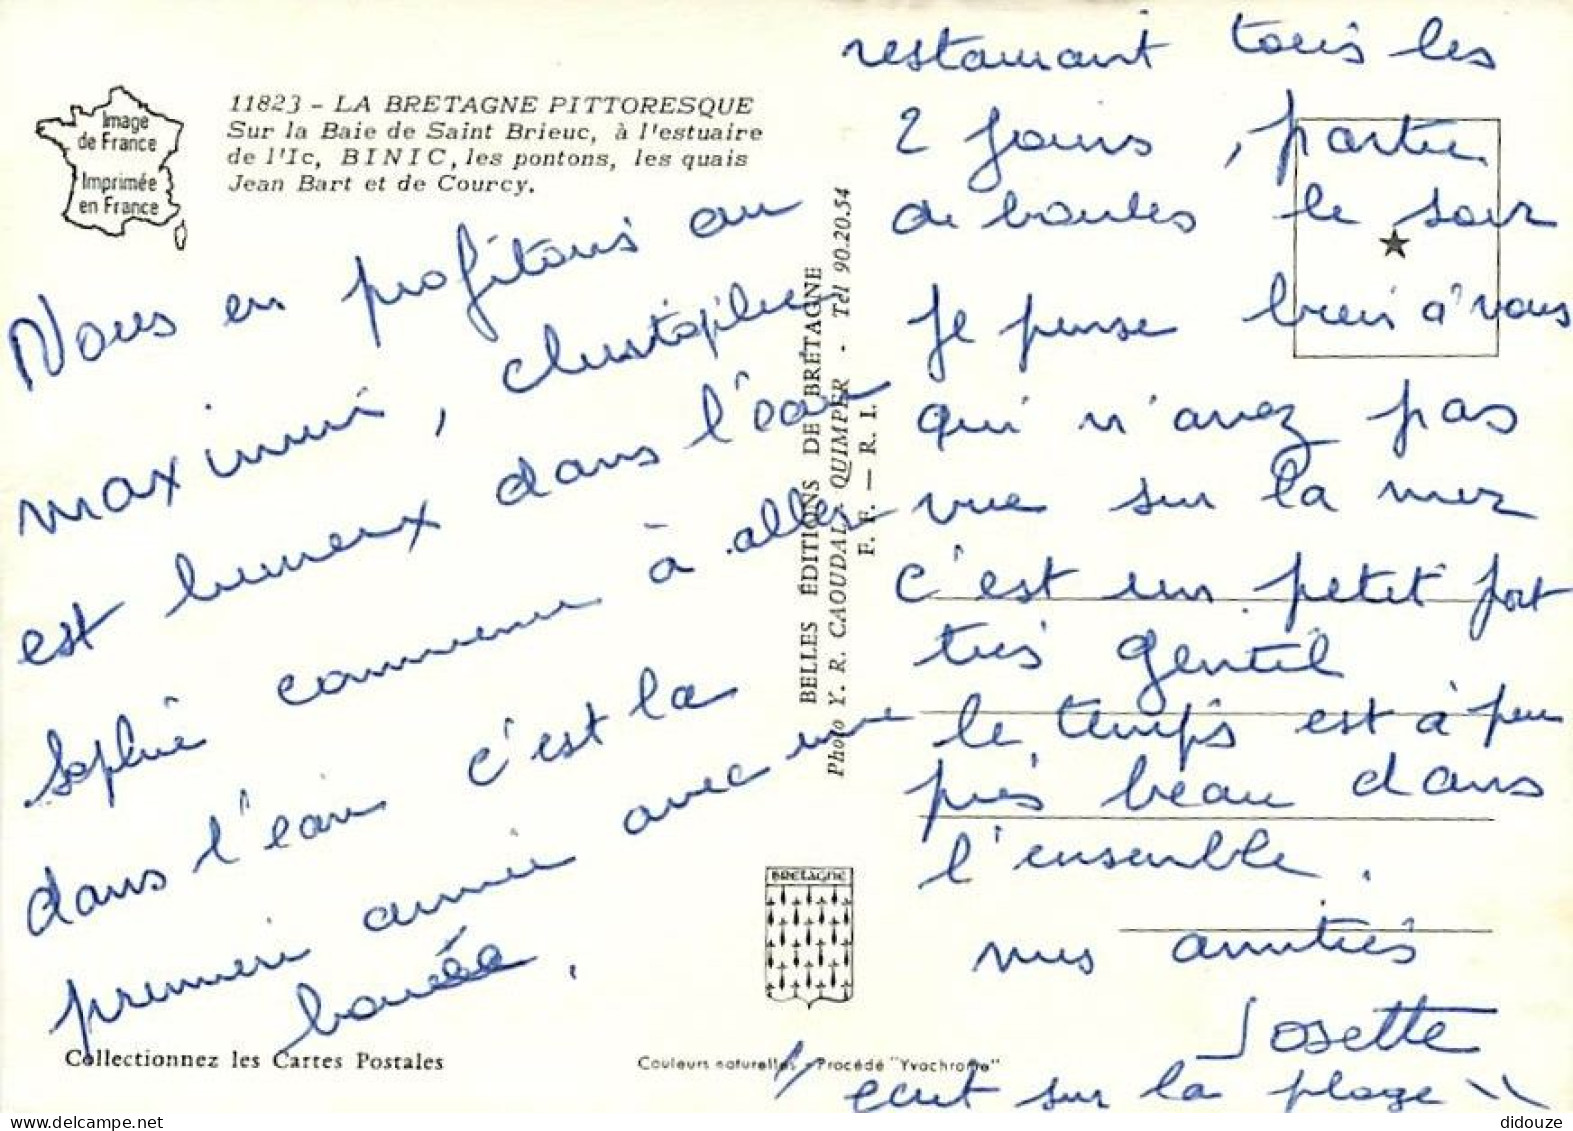 Image
de France
Imprimée
en France
11823 - LA BRETAGNE PITTORESQUE
Sur la Baie de Saint Brieuc, à l'estuaire
de l'Ic, BINIC, les pontons, les quais
Jean Bart et de Courcy.
Nous en profitons au
maximum, christophe
est heureux dans l'eau
Sophie commence à aller
dans l'eau c'est la
première année avec une
bouée.
Collectionnez les Cartes Postales
BELLES ÉDITIONS DE BRETAGNE
Photo Y. R. CAOUDAL - QUIMPER - Tél 90.20.54
F. F. — R. I.
BRETAGNE
Couleurs naturelles - Procédé "Yvochrome"
restaurant tous les
2 jours, partie
de boules le soir
Je pense bien à vous
qui n'avez pas
vue sur la mer
c'est un petit port
très gentil
le temps est à peu
près beau dans
l'ensemble.
mes amitiés
Josette
écrit sur la plage
didouze